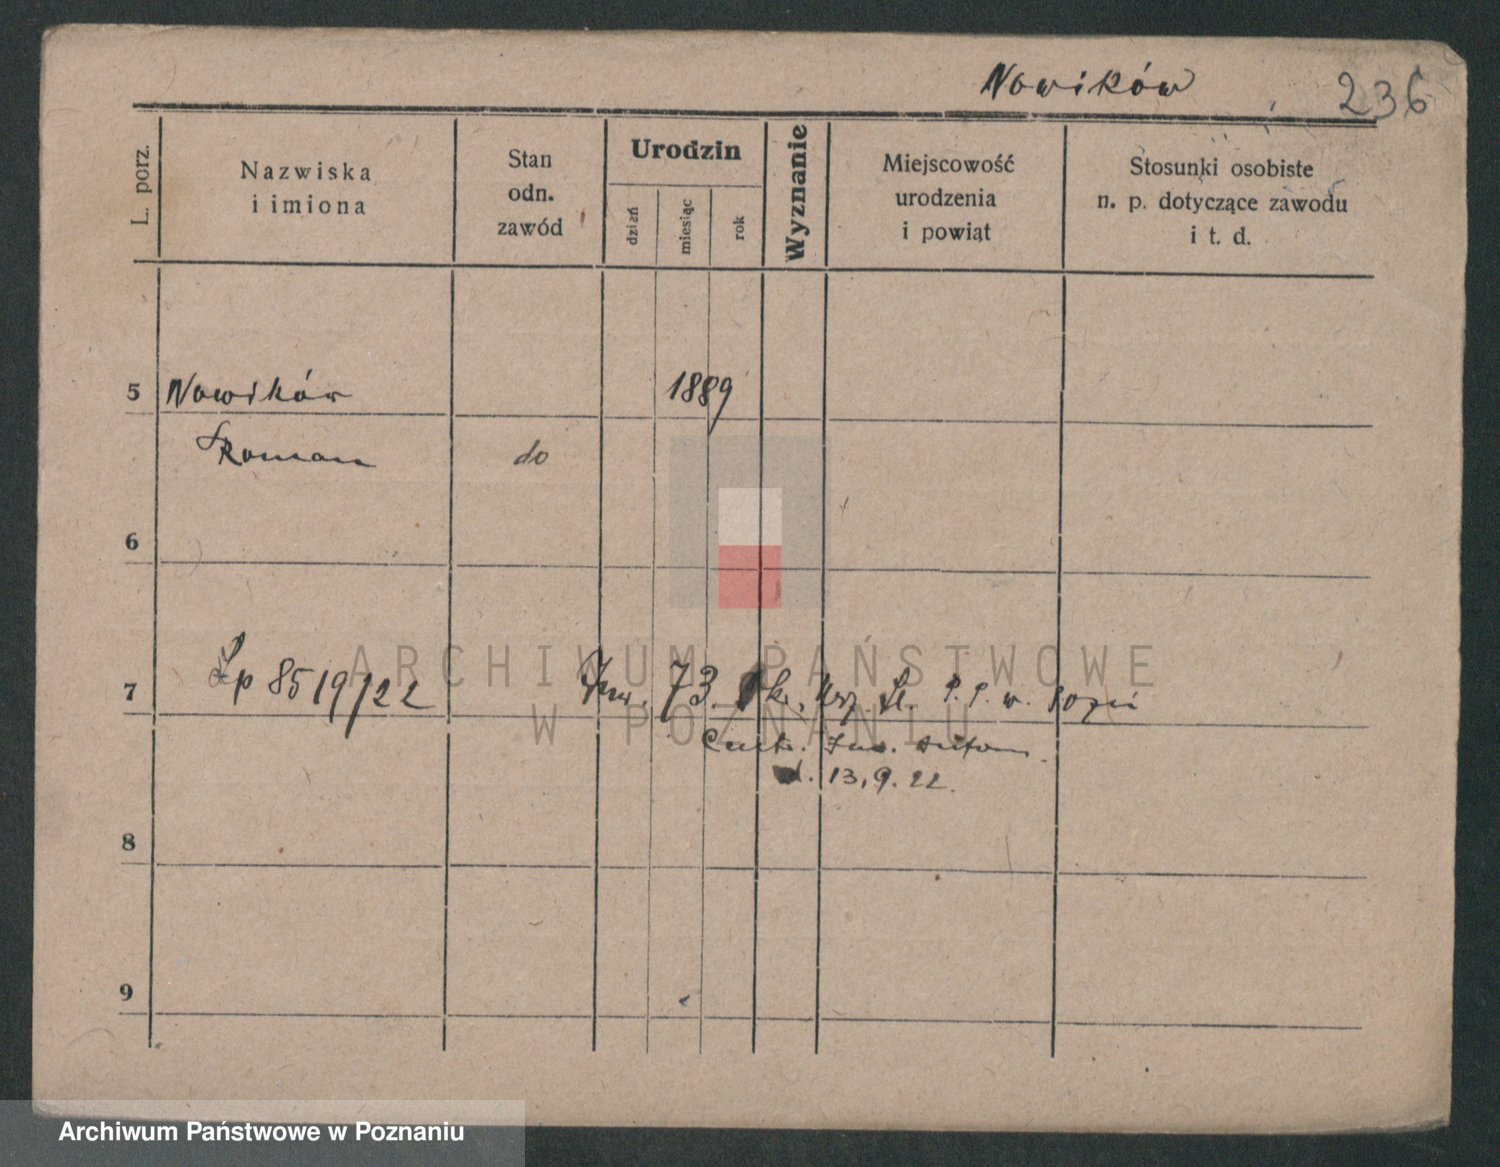 Nowików
236
L. porz.
Nazwiska
i imiona
Stan
odn.
zawód
Urodzin
dzień
miesiąc
rok
Wyznanie
Miejscowość
urodzenia
i powiąt
Stosunki osobiste
n. p. dotyczące zawodu
i t. d.
5 Nowików 1889
Roman do
6
7 Lp 8519/22 73. P. P. w.
d. 13.9.22.
8
9
ARCHIWUM PAŃSTWOWE
W POZNANIU
Archiwum Państwowe w Poznaniu